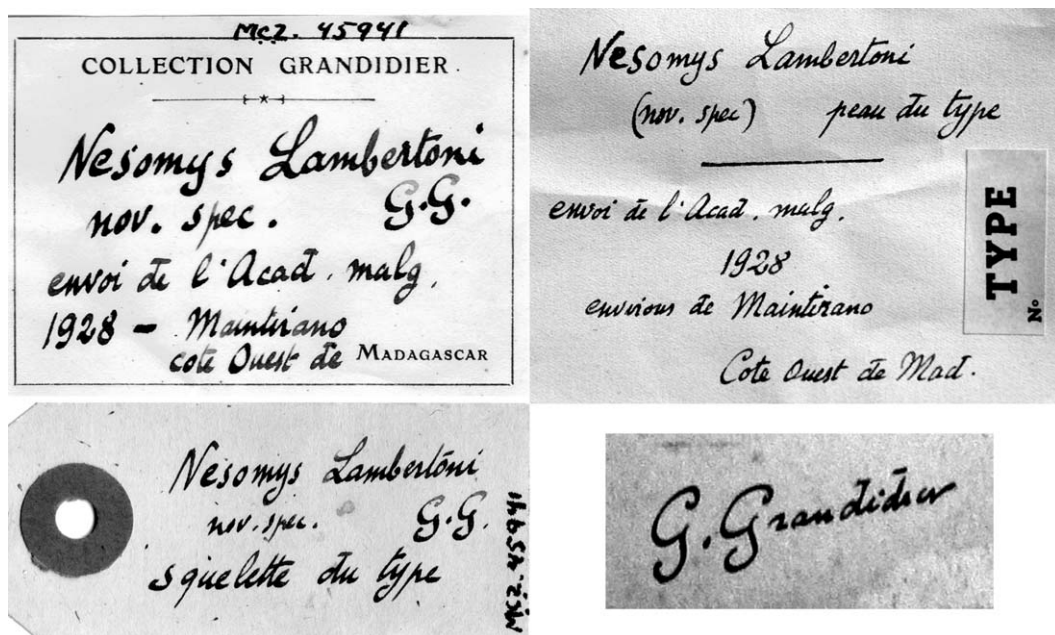 MCZ. 45941
COLLECTION GRANDIDIER.
Nesomys Lambertoni
nov. spec. G.G.
envoi de l'Acad. malg.
1928 - Maintirano
cote Ouest de MADAGASCAR
Nesomys Lambertoni
(nov. spec) peau du type
envoi de l'Acad. malg.
1928
environs de Maintirano
Cote Ouest de Mad.
TYPE
No
Nesomys Lambertoni
nov. spec. G.G.
squelette du type
MCZ. 45941
G. Grandidier